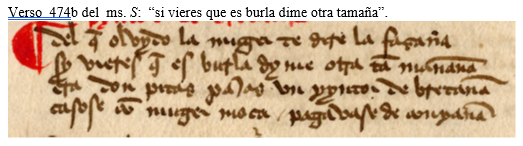 Verso 474b del ms. S: “si vieres que es burla dime otra tamaña”.
del q̄ olvydo la muger te dire la fazaña
sy vieres q̄ es burla dyme otra tā mañana
era don pitas pajas un pyntor de bretaña
casose cō muger moça pagavase de conpaña